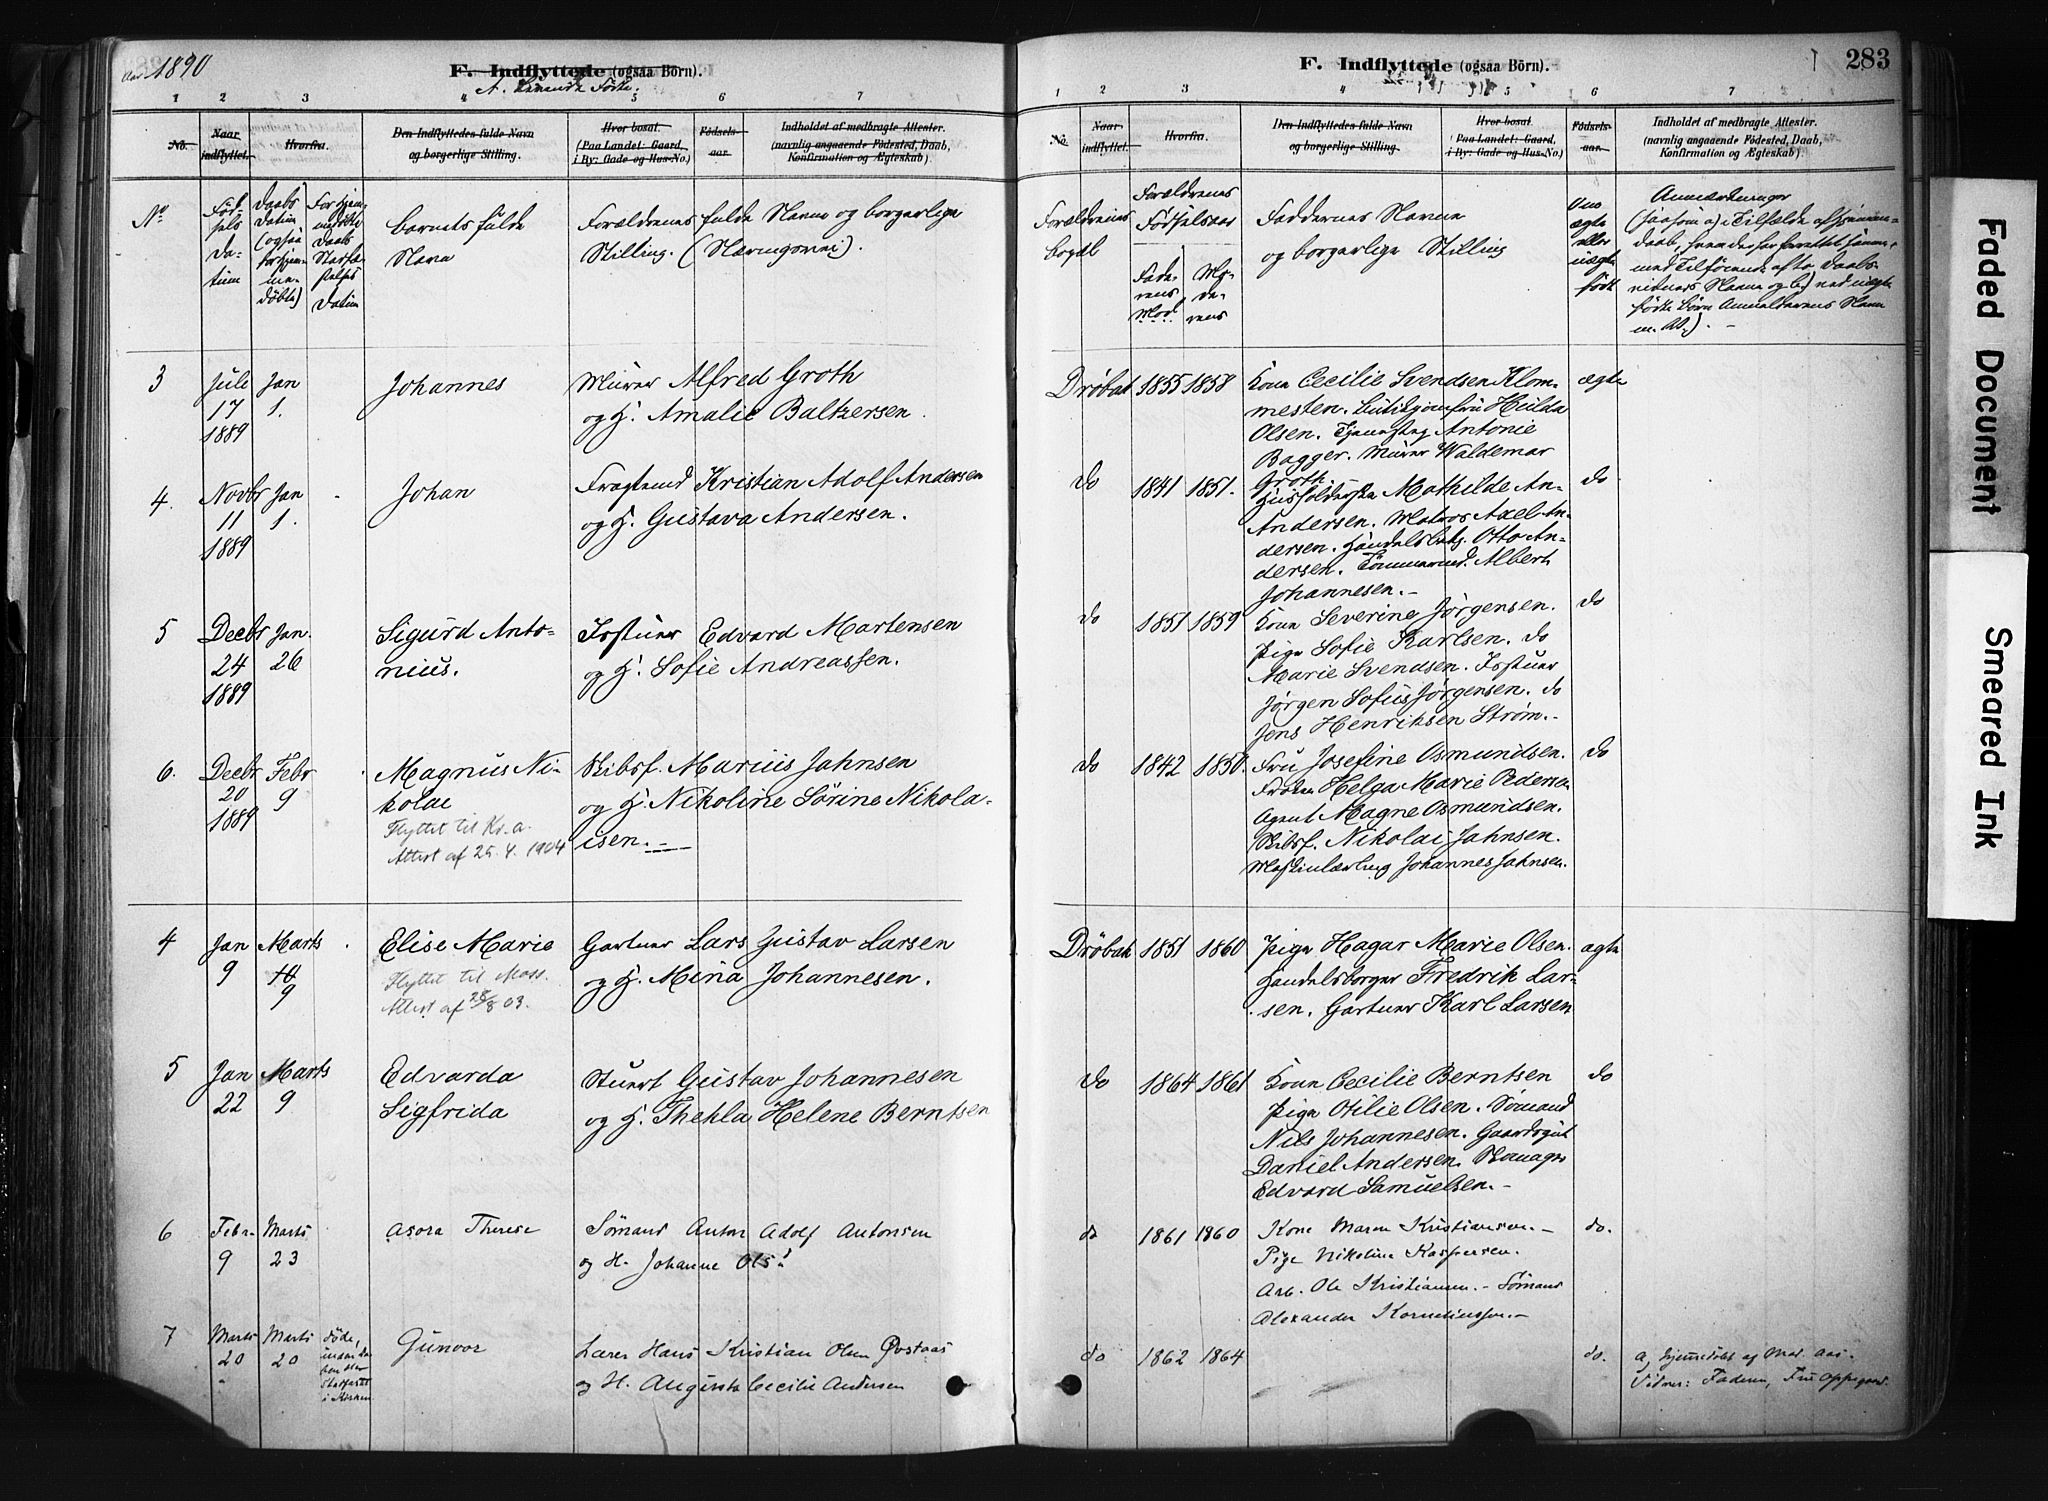 Aar 1890
F. Indflyttede (ogsaa Börn).
A. Levende Fødte.
1 2 3 4 5 6 7
No.
Naar indflyttet.
Hvorfra.
Den Indflyttedes fulde Navn
og borgerlige Stilling.
Hvor bosat.
(Paa Landet: Gaard,
i By: Gade og Hus-No.)
Fødsels-
aar.
Indholdet af medbragte Attester.
(navnlig angaaende Födested, Daab,
Konfirmation og Ægteskab)
No
Fød-
sels
Da-
tum
Daabs
Datum
(ogsaa
for hjem-
me-
døbte)
For hjem-
medøbte
Daabs
Stadfæ-
stelses
Datum
Barnets fulde
Navn
Forældrenes fulde Navne og borgerlige
Stilling. (Næringsvei).
3
Juli
17
1889
Jan
1.
Johannes
Murer Alfred Groth
og H. Amalie Baltzersen.
4.
Novbr
11
1889
Jan
1.
Johan
Fragtemd Kristian Adolf Andersen
og H. Gustava Andersen.
5
Decbr
24
1889
Jan.
26
Sigurd Anto-
nius.
Isstuer Edvard Martensen
og H. Sofie Andreassen.
6.
Decbr
20
1889
Febr
9
Magnus Ni-
kolai
Flyttet til Kr.a.
Attest af 25.4.1904
Skibsf. Marius Jahnsen
og H. Nikoline Sørine Nikola-
isen.
4
Jan
9
Marts
10
9
Elise Marie
Flyttet til Moss.
Attest af 28/8 03.
Gartner Lars Gustav Larsen
og H. Mina Johannesen.
5
Jan
22
Marts
9
Edvarda
Sigfrida
Stuert Gustav Johannesen
og H. Thekla Helene Berntsen
6
Febr.
9
Marts
23
Asora Therese
Sømand Anton Adolf Antonsen
og H. Johanne Ols?
7
Marts
20
"
Marts
20
døde,
inden Daa-
ben blev
stadfæstet
i Kirken
Gunvor
Lærer Hans Kristian Olsen Østaas
og H. Augusta Cecilie Andersen
283
F. Indflyttede (ogsaa Börn).
1 2 3 4 5 6 7
No.
Naar
indflyttet.
Hvorfra.
Den Indflyttedes fulde Navn
og borgerlige Stilling.
Hvor bosat
(Paa Landet: Gaard,
i By: Gade og Hus-No.)
Födsels-
aar.
Indholdet af medbragte Attester.
(navnlig angaaende Födested, Daab,
Konfirmation og Ægteskab)
Forældrenes
Bopæl
Forældrenes
Fødselsaar
Fade-
rens
Mo-
de-
rens
Faddernes Navne
og borgerlige Stilling
Om
ægte
eller
uægte
født
Anmærkninger
(saasom a) i Tilfælde af Hjemme-
daab, hvem der har forrettet samme,
med Tilføiende af to Daabs-
vidners Navne og b) ved uægte
fødte Børn Anmelderens Navn
Drøbak 1855 1858
Kone Cecilie Svendsen Klom-
mesten. Butikjomfru Hulda
Olsen. Tjenestep Antonie
Bagger. Murer Waldemar
Groth.
ægte
do 1841 1851.
Husholderske Mathilde An-
Andersen. Matros Axel An-
dersen. Handelsbetj. Otto An-
dersen. Tømmermd. Albert
Johannesen.
do
do 1851 1859
Kone Severine Jørgensen.
Pige Sofie Karlsen. do
Marie Svendsen. Isstuer
Jørgen Sofus Jørgensen. do
Jens Henriksen Strøm.
do
do 1842 1850.
Fru Josefine Osmundsen.
Frøken Helga Marie Pedersen
Agent Magne Osmundsen.
Skibsf. Nikolai Jahnsen.
Maskinlærling Johannes Jahnsen.
do
Drøbak 1851 1860
Pige Hagar Marie Olsen.
Handelsborger Fredrik Lar-
sen. Gartner Karl Larsen
ægte
do 1864 1861
Kone Cecilie Berntsen
Pige Otilie Olsen. Sømand
Nils Johannesen. Gaardsgut
Daniel Andersen. Skomager
Edvard Samuelsen.
do
do 1861 1860
Kone Maren Kristiansen.
Pige Nikoline Kaspersen.
Arb. Ole Kristiansen. Sømand
Alexander Korneliussen.
do.
do 1862 1864
do.
a, hjemmedøbt af Mad. Aas.
Vidner: Faderen, Fru Oppegaard.
Faded Document
Smeared Ink